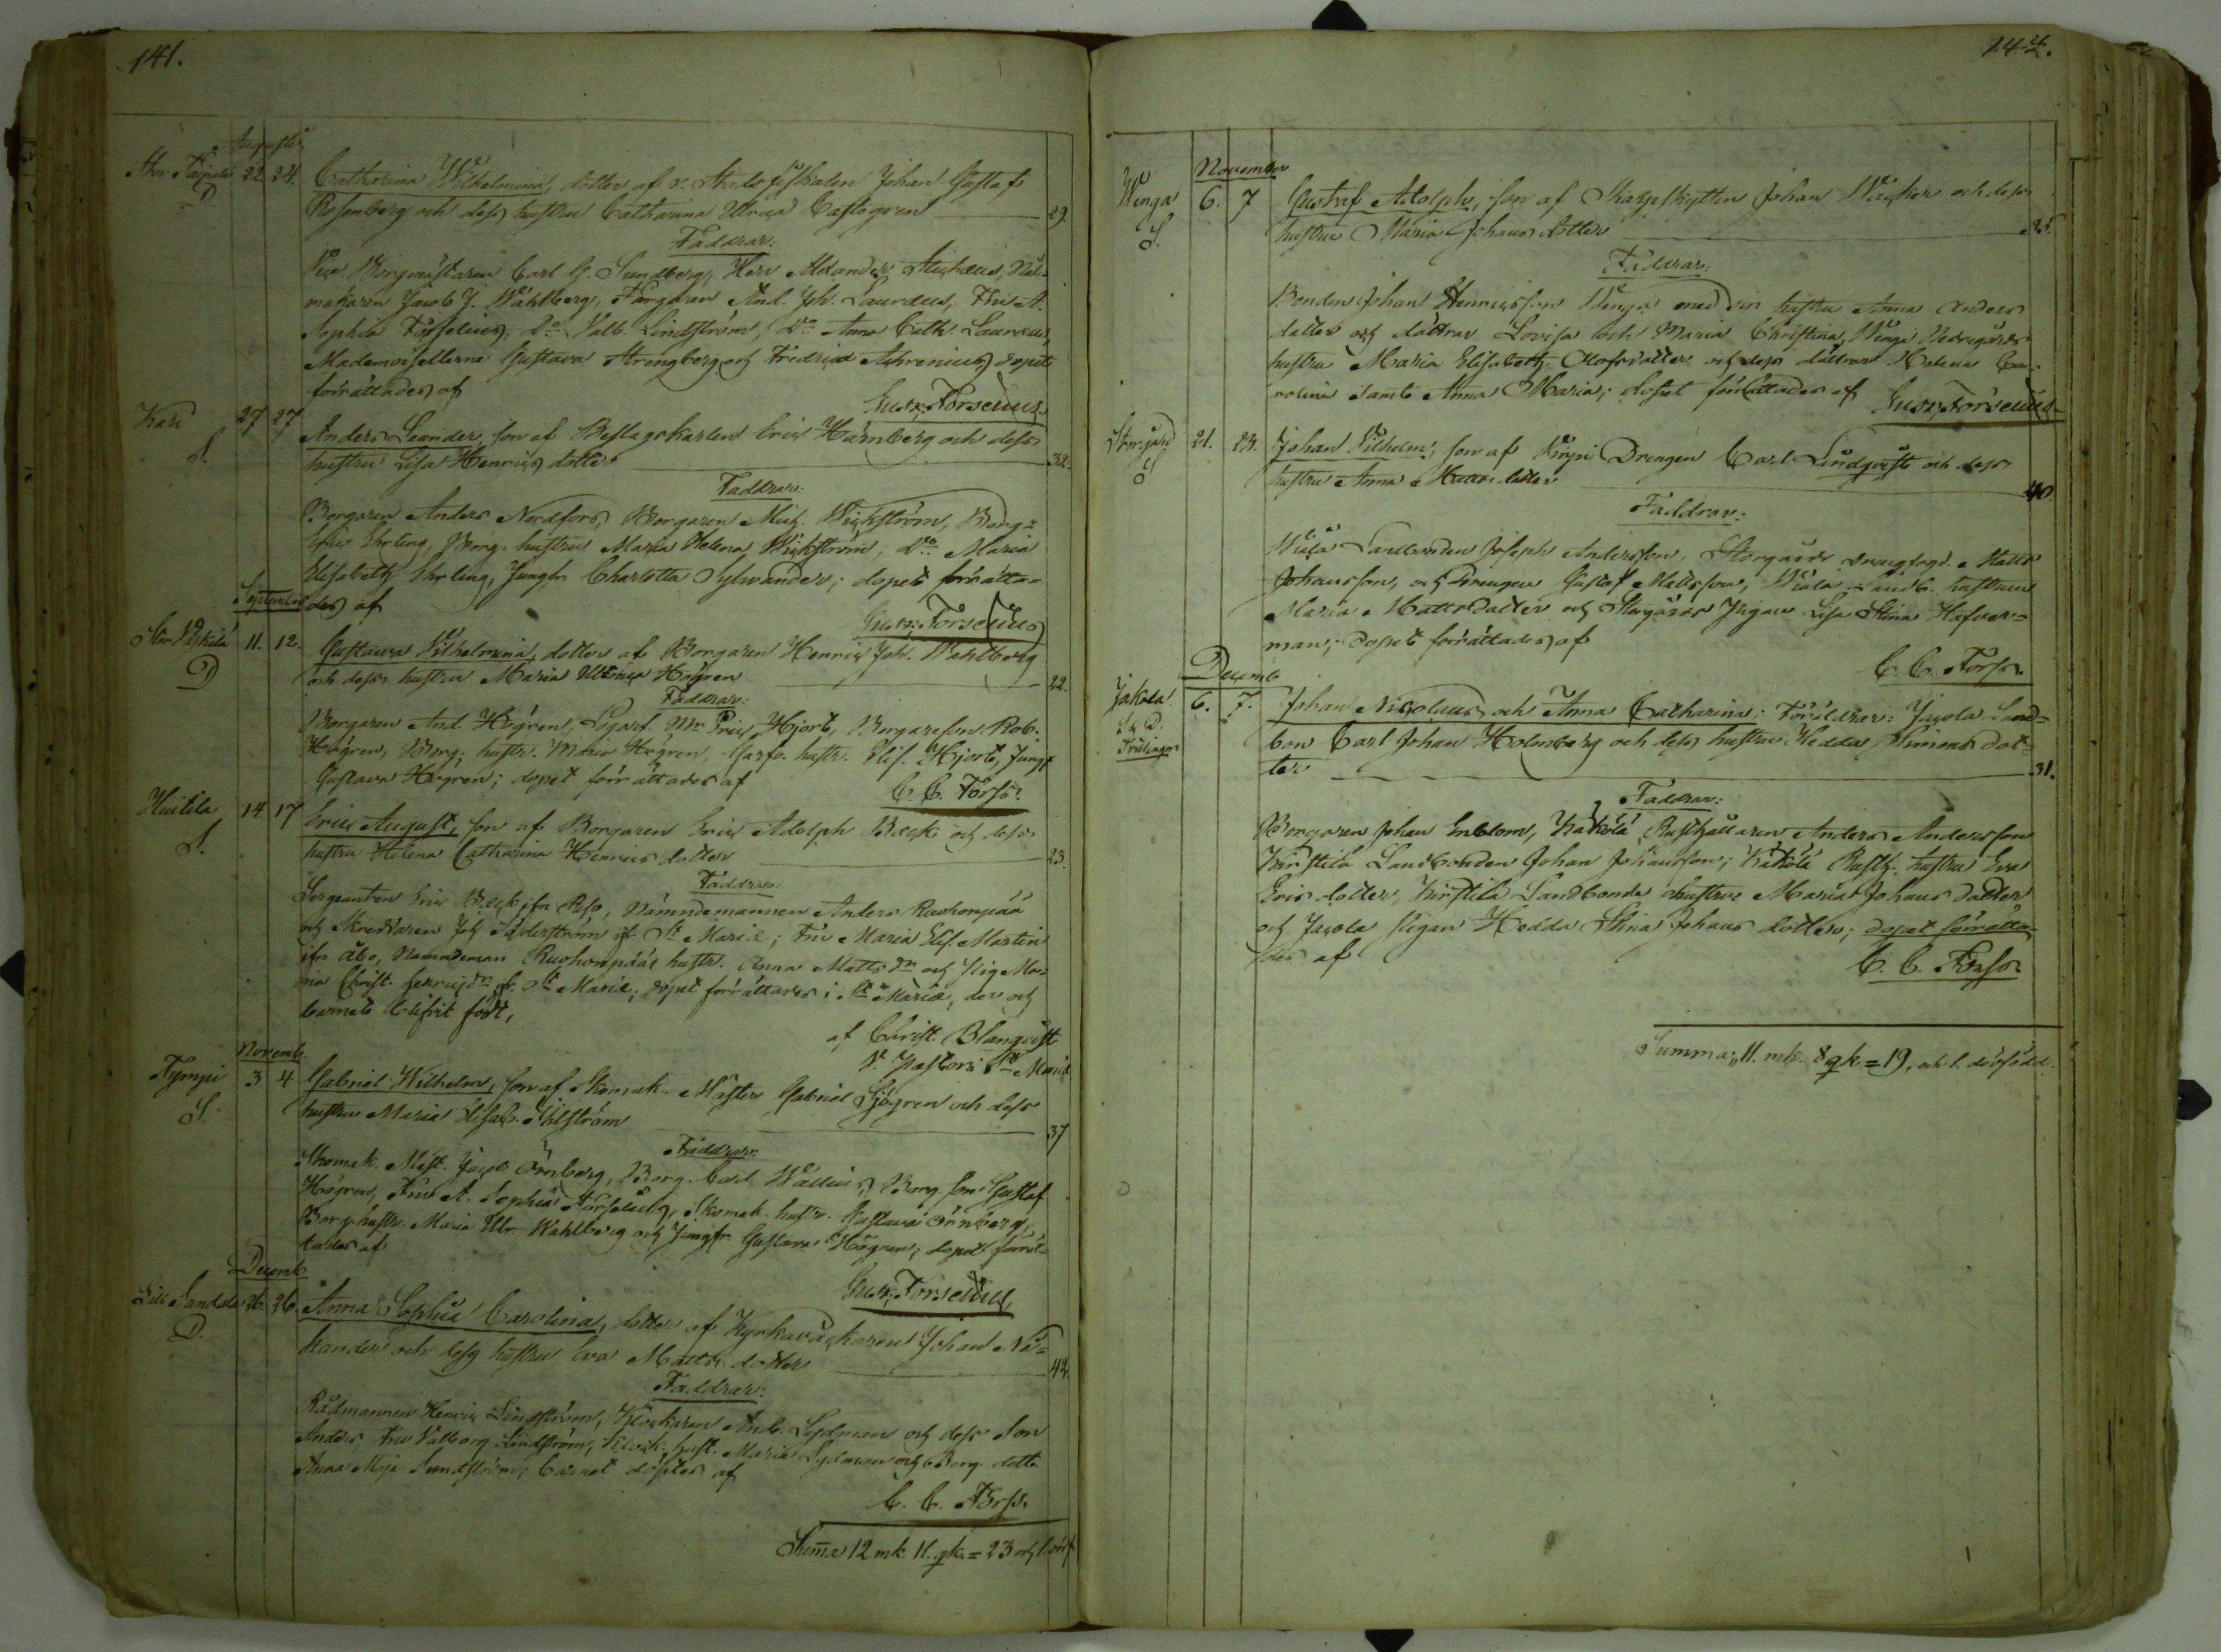 141.
Augusti
Stor Tärpilä 22 24. Catharina Wilhelmina, dotter af v. Stadsfiskalen Johan Gustaf
D Rosenberg och dess hustru Catharina Ulrica Castegren 29.
Faddrar:
Vice Borgmästaren Carl G. Sundberg, Herr Alexander
makaren Jacob J. Wahlberg, Färgaren And. Joh. Lauræus, Fru A.
Sophia Forselius, d:o Valb. Lindström, d:o Anna Cath. Lauræus,
Mademoisellerne Gustava Strengberg och Fredrica Ahrenius; dopet
förrättades af Gust. Forselius.
Kari 27 27 Anders Leander, son af Beslagskarlen Eric Härnberg och dess
S. hustru Lisa Henrics dotter 32.
Faddrar:
Borgaren Anders Nordfors, Borgaren Mich. Wickström, Borg:
Eric Ihrling, Borg. hustru Maria Helena Wickström, d:o Maria
Elisabeth Ihrling, Jungfr. Charlotta Sylwander; dopet förrätta=
September des af Gust. Forselius
11. 12. Gustava Vilhelmina, dotter af Borgaren Henric Joh. Wahlberg
D och dess hustru Maria Ulrica Högren 22.
Faddrar:
Borgaren And. Högren, Garf. Mr. Eric Hjort, Borgareson Rob.
Högren, Borg. hustr. Maria Högren, Garfv. hustr. Elis. Hjort, Jungf
Gustava Högren; dopet förrättades af C. C. Forss.
Huitila 14. 17 Eric August, son af Borgaren Eric Adolph Beck och dess
S. hustru Helena Catharina Henrics dotter 23.
Faddrar:
Sergeanten Eric Beck ifr. Reso, Nämndemannen Anders Ruohonpää
och Skreddaren Joh Säderström ifr. S:t Mariæ; Fru Maria Elis. Martin
ifr. Åbo, Nämndeman Ruohonpääs hustr. Anna Matts dr. och Pig. Ma=
ria Christ. Henricsdr. ifr. S:t Mariæ; dopet förrättades i S:t Mariæ, der och
barnet blifvit födt,
af Christ. Blanqvist
V. Pastor i S:t Mariæ
Novemb.
Tympi 3. 4. Gabriel Wilhelm, son af Skomak. Mäster Gabriel Sjögren och dess
S. hustru Maria Elisab. 37
Faddrar:
Skomak. Mäst. Jacob Örnberg, Borg. Carl Wallius, Borg. son Gustaf
Högren, Fru A. Sophia Forselius, Skomak. hustr. Gustava Örnberg,
Borg. hustr. Maria Ulr. Wahlberg och Jungfr. Gustava Högren; dopet förrät=
tades af Gust. Forselius,
Decemb.
Lill Sandola 26. 26. Anna Sophia Carolina, dotter af Kyrkaväcktaren Johan Ni=
D. kander och dess hustru Eva Matts dotter 42.
Faddrar:
Rådmannen Henric Lindström, Klockaren And. Lydman och dess Son
Anders, Fru Valborg Lindström, Klock. hust. Maria Lydman och Borg. dott.
Anna Maja Sundström; barnet döptes af
C. C. Forss.
Summa 12 mk. 11. qk. = 23 och 1.
142.
November
Wänga 6. 7 Gustaf Adolph, son af Skarpskytten Johan Wacker och dess
S. hustru Maria Johans dotter 25.
Faddrar:
Bonden Johan Henricsson Wänga med sin hustru Anna Anders
dotter och döttrar Lovisa och Maria Christina, Wänga Nedregårds
hustru Maria Elisabeth Olofsdotter och dess döttrar Helena Ca=
rolina samt Anna Maria; dopet förrättades af Gust. Forselius
Storgård 21. 23. Johan Vilhelm, son af Drengen Carl Lindqvist och dess
S hustru Anna Matts dotter 40.
Faddrar:
Wiala Landbonden Joseph Andersson, Storgårds drängfogd. Matts
Johansson, och Drengen Gustaf Mattsson, Wiala Landb. hustrun
Maria Mattsdotter och Storgårds Pigan Lisa Stina Hafver=
man; dopet förrättades af
C. C. Forss.
Decemb
Jakola 6. 7. Johan Nicolaus och Anna Catharina; Föräldrar: Jacola Land=
S & D. bon Carl Johan Holmberg och dess hustru Hedda Simons dot=
Tvillingar ter 31.
Faddrar:
Borgaren Johan Enblom, Käköilä Rusthållaren Anders Andersson
Kurstila Landbonden Johan Johansson; Käköilä Rusth. hustru Eva
Erics dotter, Kurstila Landbonde hustru Maria Johans dotter
och Jacola Pigan Hedda Stina Johans dotter; dopet förrätta=
des af C. C. Forss
Summa: 11. mk. 8 qk = 19, och 1. dödfödd.